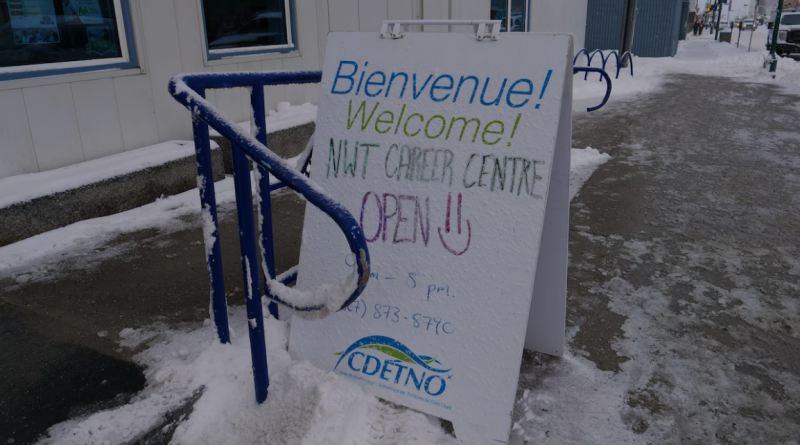 Bienvenue!
Welcome!
NWT CAREER CENTRE
OPEN!!
– 5 pm.
873-874C
CDÉTNO